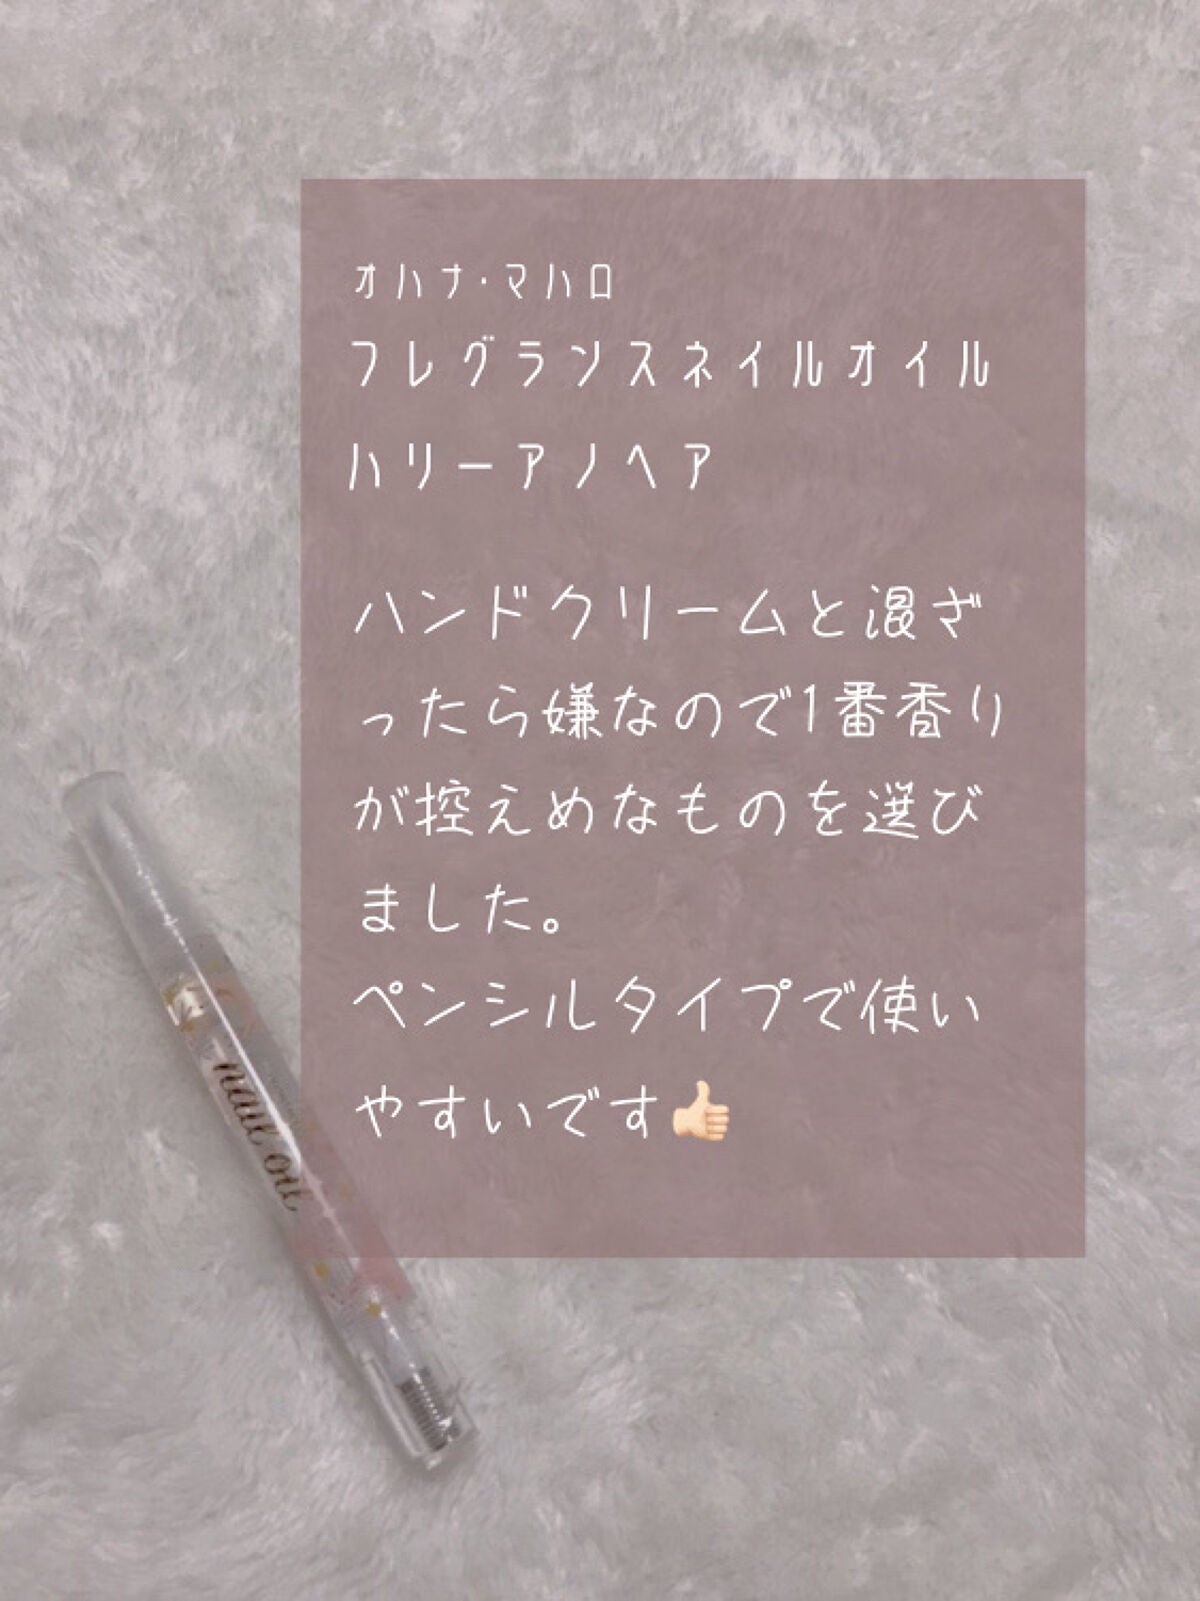 オハナ・マハロ
フレグランスネイルオイル
ハリーアノヘア
ハンドクリームと混ざ
ったら嫌なので1番香り
が控えめなものを選び
ました。
ペンシルタイプで使い
やすいです👍🏻
nail oil